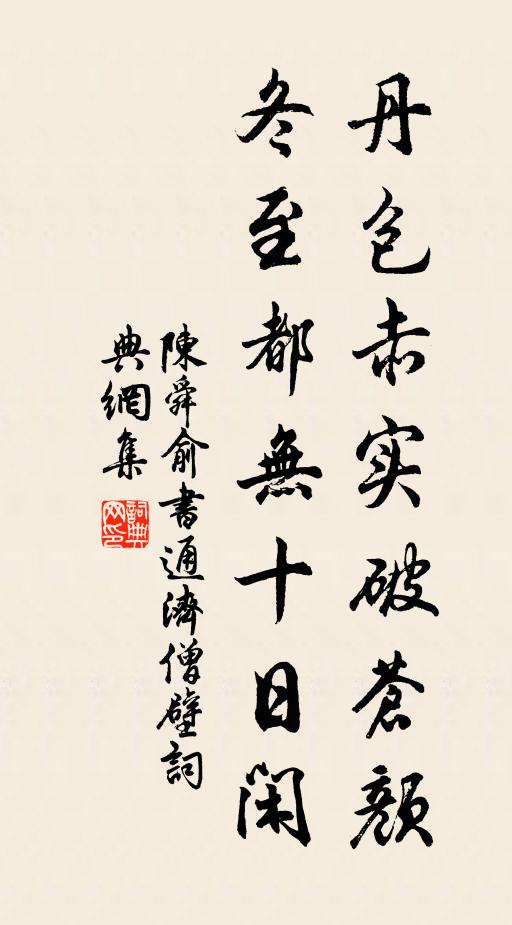 丹色赤实破蒼顔
冬至都無十日閑
陳舜俞書通濟僧壁詞
典網集
詞典
网印